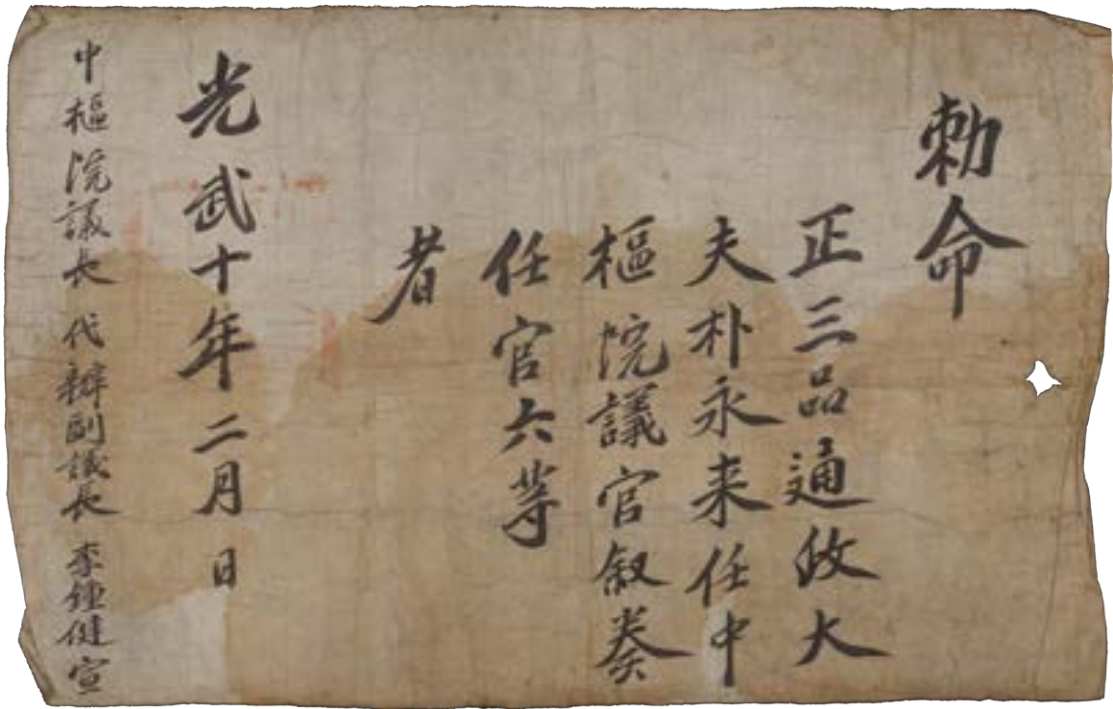 勅命
正三品通政大
夫朴永来任中
樞院議官叙奏
任官六等
者
光武十年二月 日
中樞院議長 代辦副議長 李鍾健宣